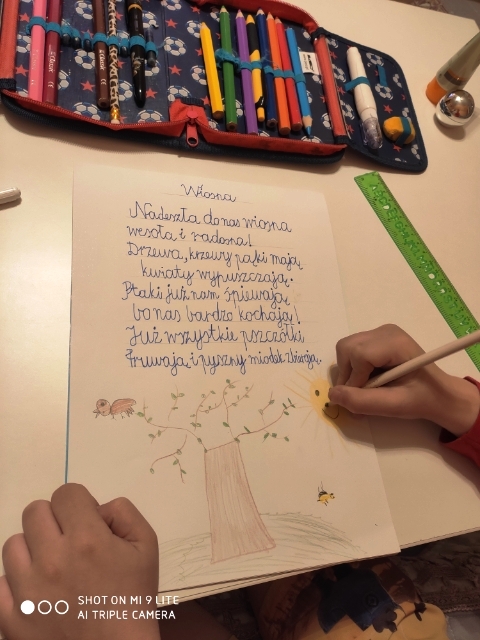 Wiosna
Nadeszła do nas wiosna
wesoła i radosna!
Drzewa, krzewy pąki mają
kwiaty wypuszczają.
Ptaki już nam śpiewają
bo nas bardzo kochają!
Już wszystkie pszczółki
fruwają i pyszny miodek zbierają.
SHOT ON MI 9 LITE
AI TRIPLE CAMERA